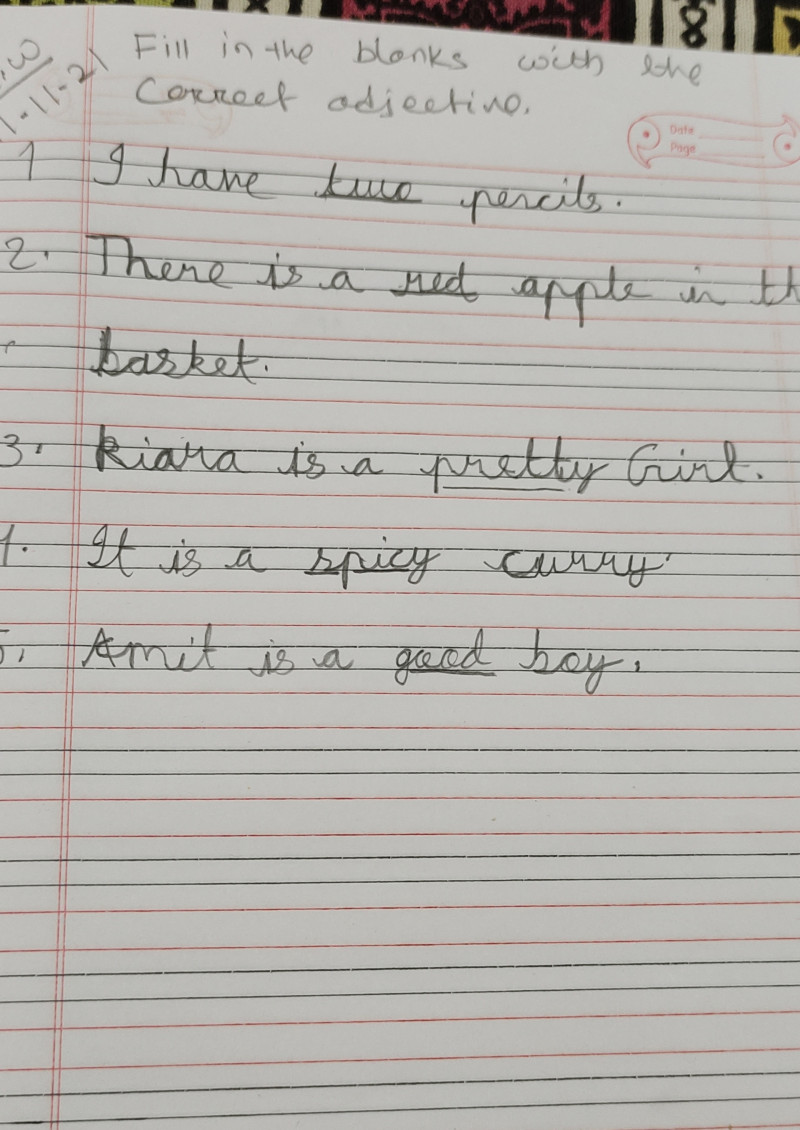 Fill in the blanks with the
Correct adjective.
Date
Page
1 I have two pencils.
2. There is a red apple in th
basket.
3. Kiara is a pretty Girl.
4. It is a spicy curry.
5. Amit is a good boy.